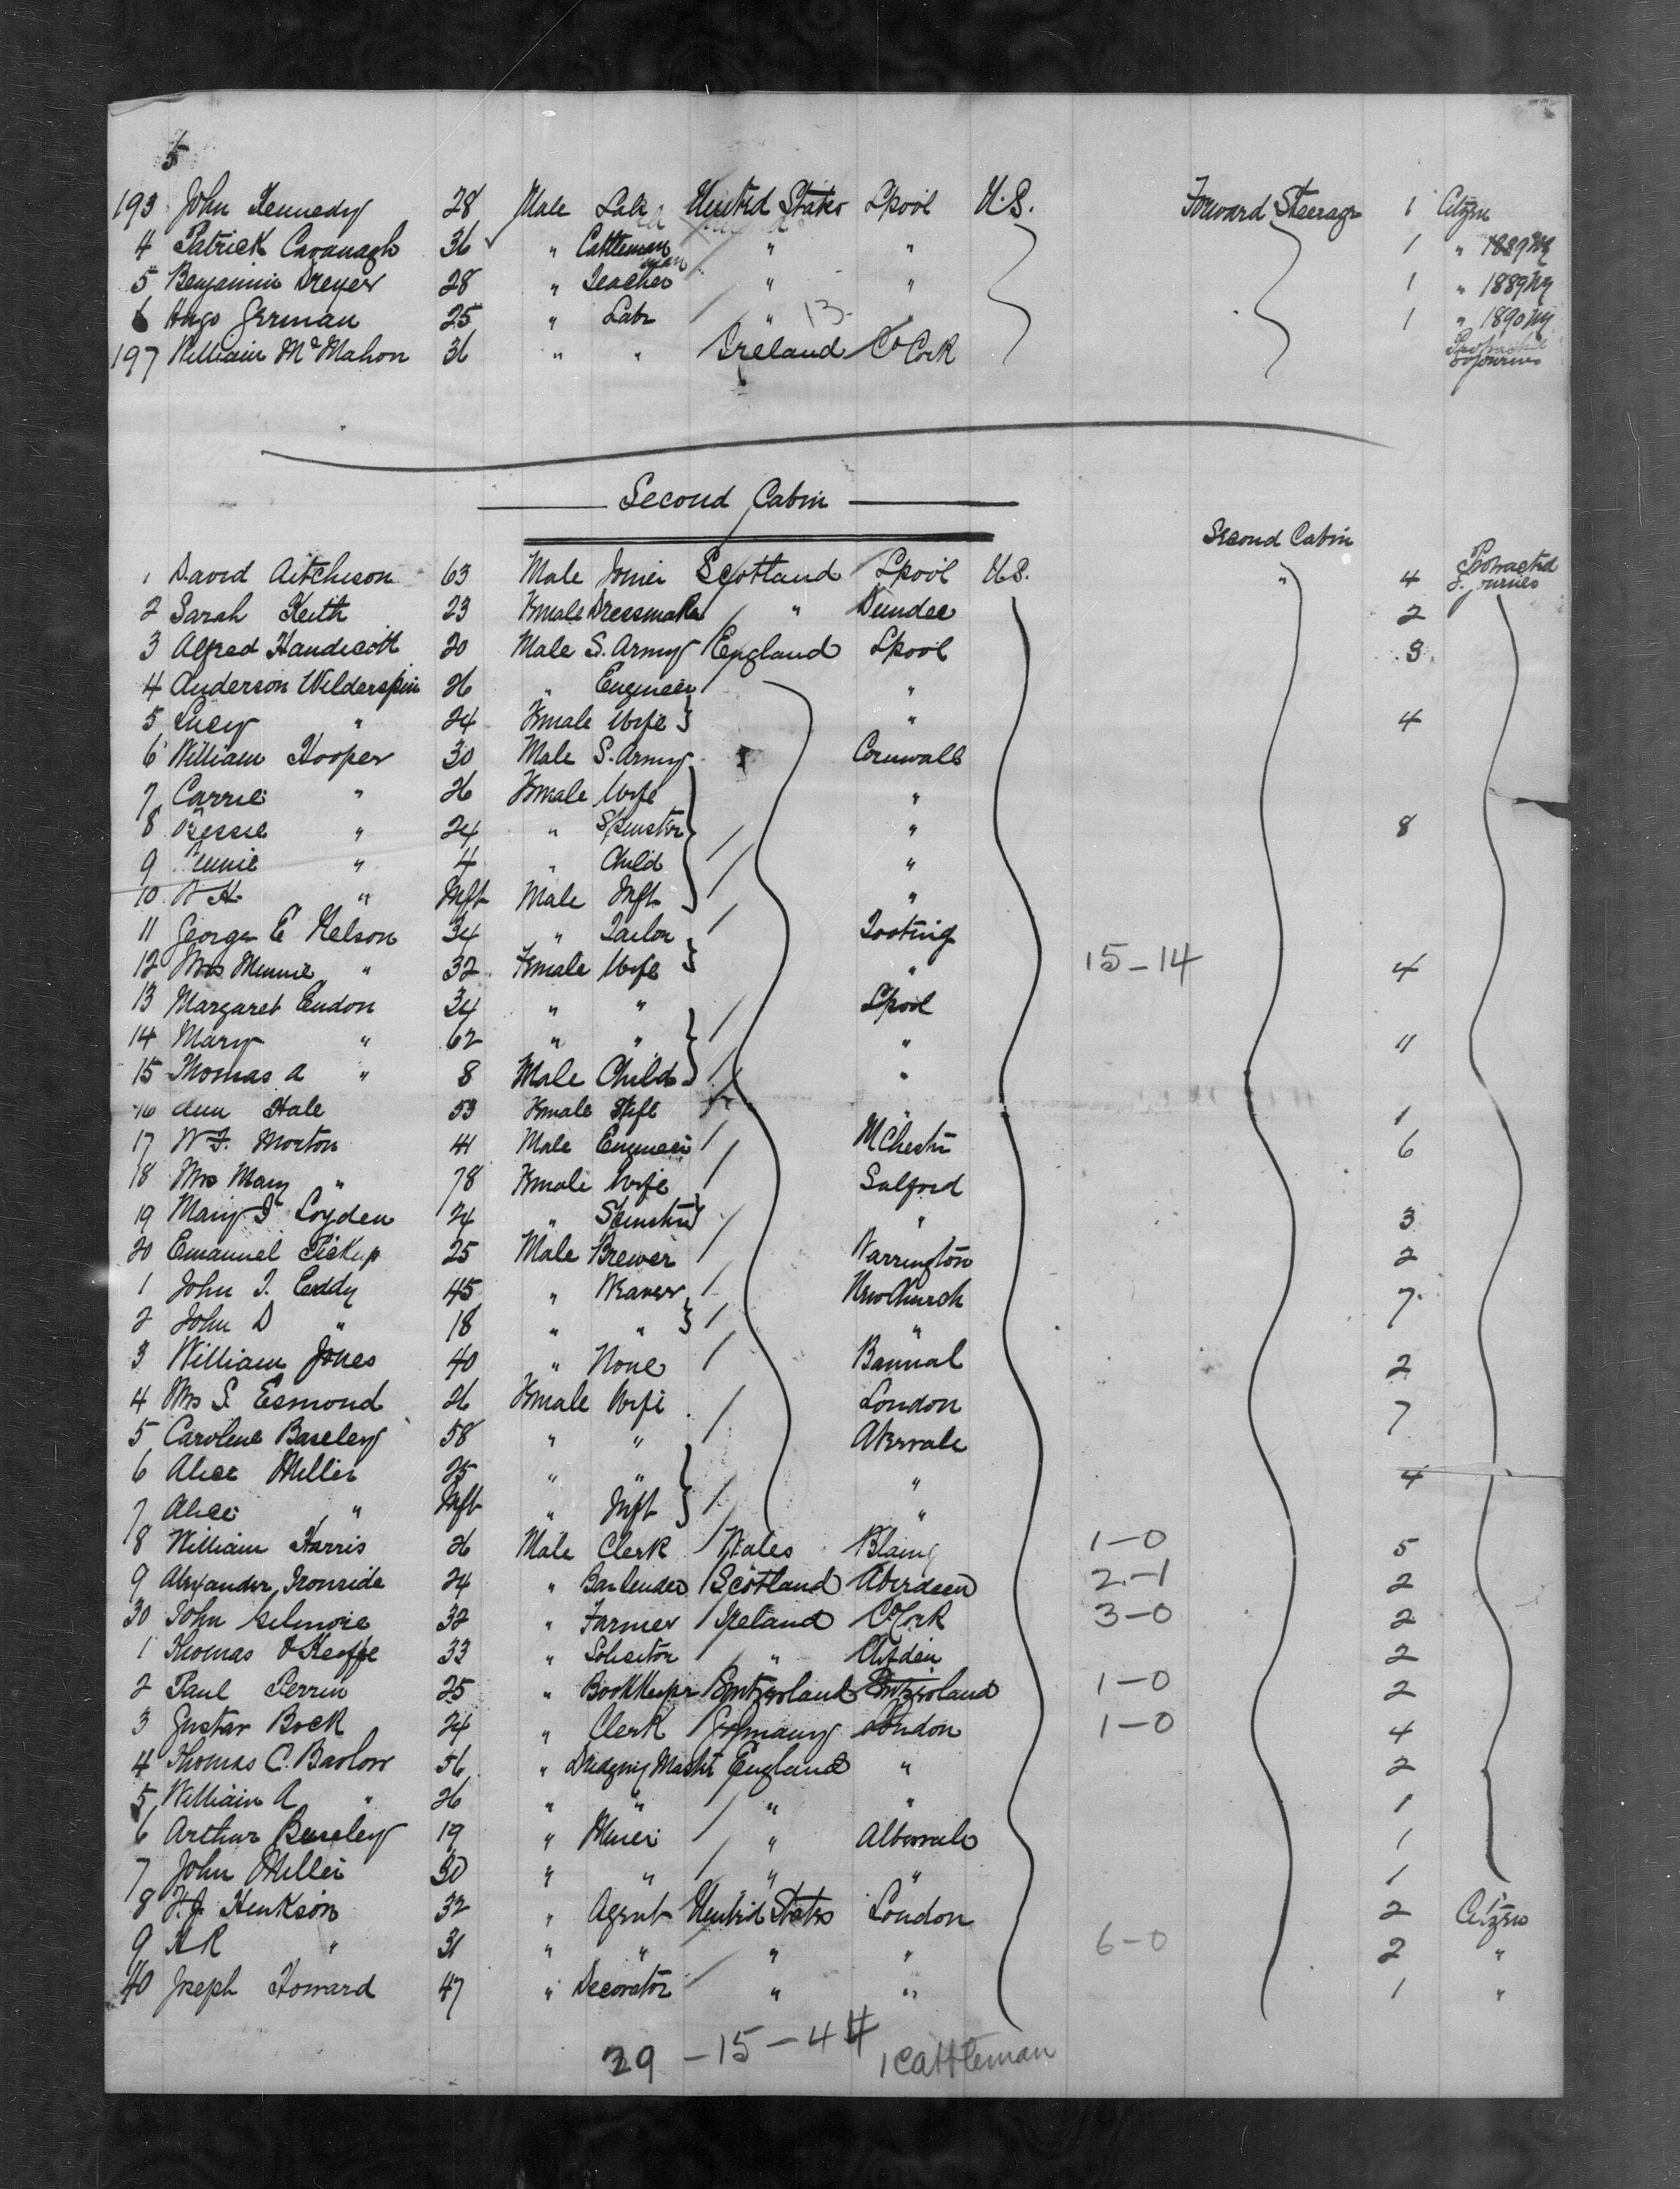 5
193 John Kennedy 28 Male Labr United States Lpool U.S. Forward Steerage 1 Citizen
4 Patrick Cavanagh 36 " Cattleman " " 1 " 1889 NY
5 Benjamin Dreyer 28 " Teacher " " 1 " 1889 NY
6 Hugo German 25 " Labr " 13 " 1 " 1890 NY
197 William McMahon 36 " " Ireland Co Cork Protracted Sojourns
Second Cabin
Second Cabin
1 David Aitcheson 63 Male Joiner Scotland Lpool U.S. " 4 Protracted Sojournes
2 Sarah Keith 23 Female Dressmaker " Dundee 2
3 Alfred Handscott 20 Male S. Army England Lpool 3
4 Anderson Wilderspin 26 " Engineer "
5 Lucy " 24 Female Wife " 4
6 William Hooper 30 Male S. Army Cornwall
7 Carrie " 26 Female Wife "
8 Bessie " 24 " Spinster " 8
9 " 4 " Child "
10 " Inft Male Inft "
11 George E Nelson 34 " Tailor Tooting
12 Mrs Minnie " 32 Female Wife " 15-14 4
13 Margaret Eudon 34 " " Lpool
14 Mary " 62 " " " 11
15 Thomas A " 8 Male Child "
16 Ann Hale 53 Female Wife " 1
17 W F. Morton 41 Male Engineer MChestr 6
18 Mrs Mary " 78 Female Wife Salford
19 Mary J Loyden 24 " Spinster " 3
20 Emanuel Pickup 25 Male Brewer Warrington 2
1 John J. Eddy 45 " Weaver NewChurch 7
2 John D " 18 " " "
3 William Jones 40 " None 2
4 Mrs S. Esmond 26 Female Wife London 7
5 Caroline Baseley 58 " "
6 Alice Miller 25 " " " 4
7 Alice " Inft " Inft "
8 William Harris 26 Male Clerk Wales 1-0 5
9 Alexander Ironside 24 " Bartender Scotland Aberdeen 2-1 2
30 John Gilmore 32 " Farmer Ireland Co Cork 3-0 2
1 Thomas O'Keeffe 33 " Solicitor " 2
2 Paul Perrin 25 " Bookkeepr Switzerland Switzerland 1-0 2
3 Gustav Bock 24 " Clerk Germany London 1-0 4
4 Thomas C. Barlow 56 " Dredging Mastr England " 2
5 William A " 26 " " " " 1
6 Arthur Baseley 19 " Miner " 1
7 John Miller 30 " " " " 1
8 H.J. Henkson 32 " Agent United States London 2 Citizen
9 HR " 31 " " " " 6-0 2 "
40 Joseph Howard 47 " Decorator " " 1 "
29 - 15 - 44 1 Cattleman